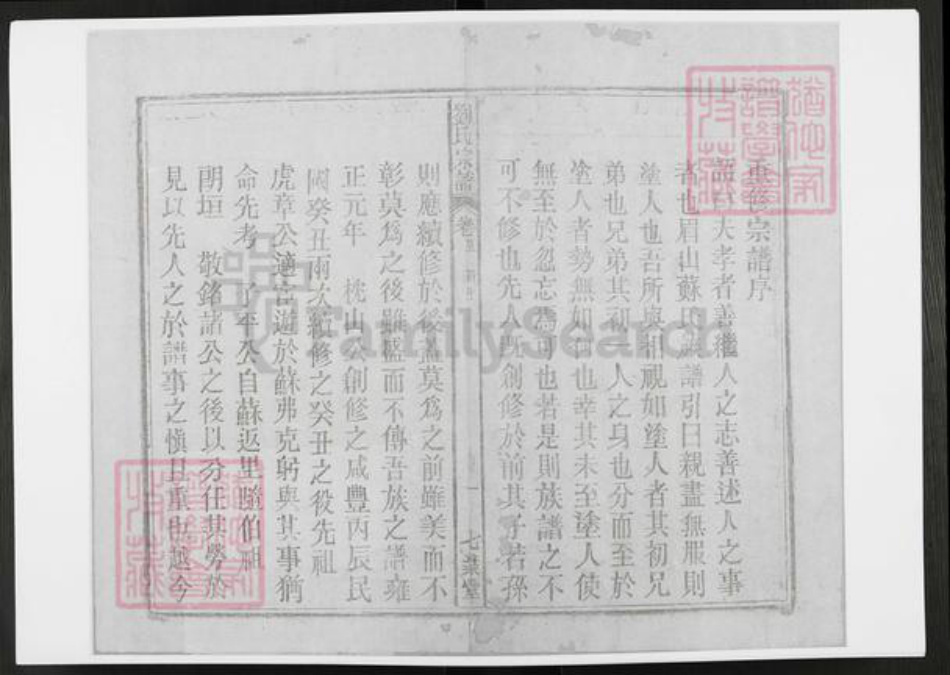 重修宗譜序
語曰大孝者善繼人之志善述人之事
者也眉山蘇氏族譜引曰親盡無服則
塗人也吾所與相視如塗人者其初兄
弟也兄弟其初一人之身也分而至於
塗人者勢無如何也幸其未至塗人使
無至於忽忘焉可也若是則族譜之不
可不修也先人既創修於前其子若孫
劉氏宗譜
卷五
一
七業堂
則應續修於後蓋莫為之前雖美而不
彰莫為之後雖盛而不傳吾族之譜雍
正元年 桃山公創修之咸豐丙辰民
國癸丑兩次續修之癸丑之役先祖
虎章公適宦遊於蘇弗克躬與其事猶
命先考 平公自蘇返里隨伯祖
朗垣 敬銘諸公之後以分任其勞於
見以先人之於譜事之慎且重也越今
FamilySearch